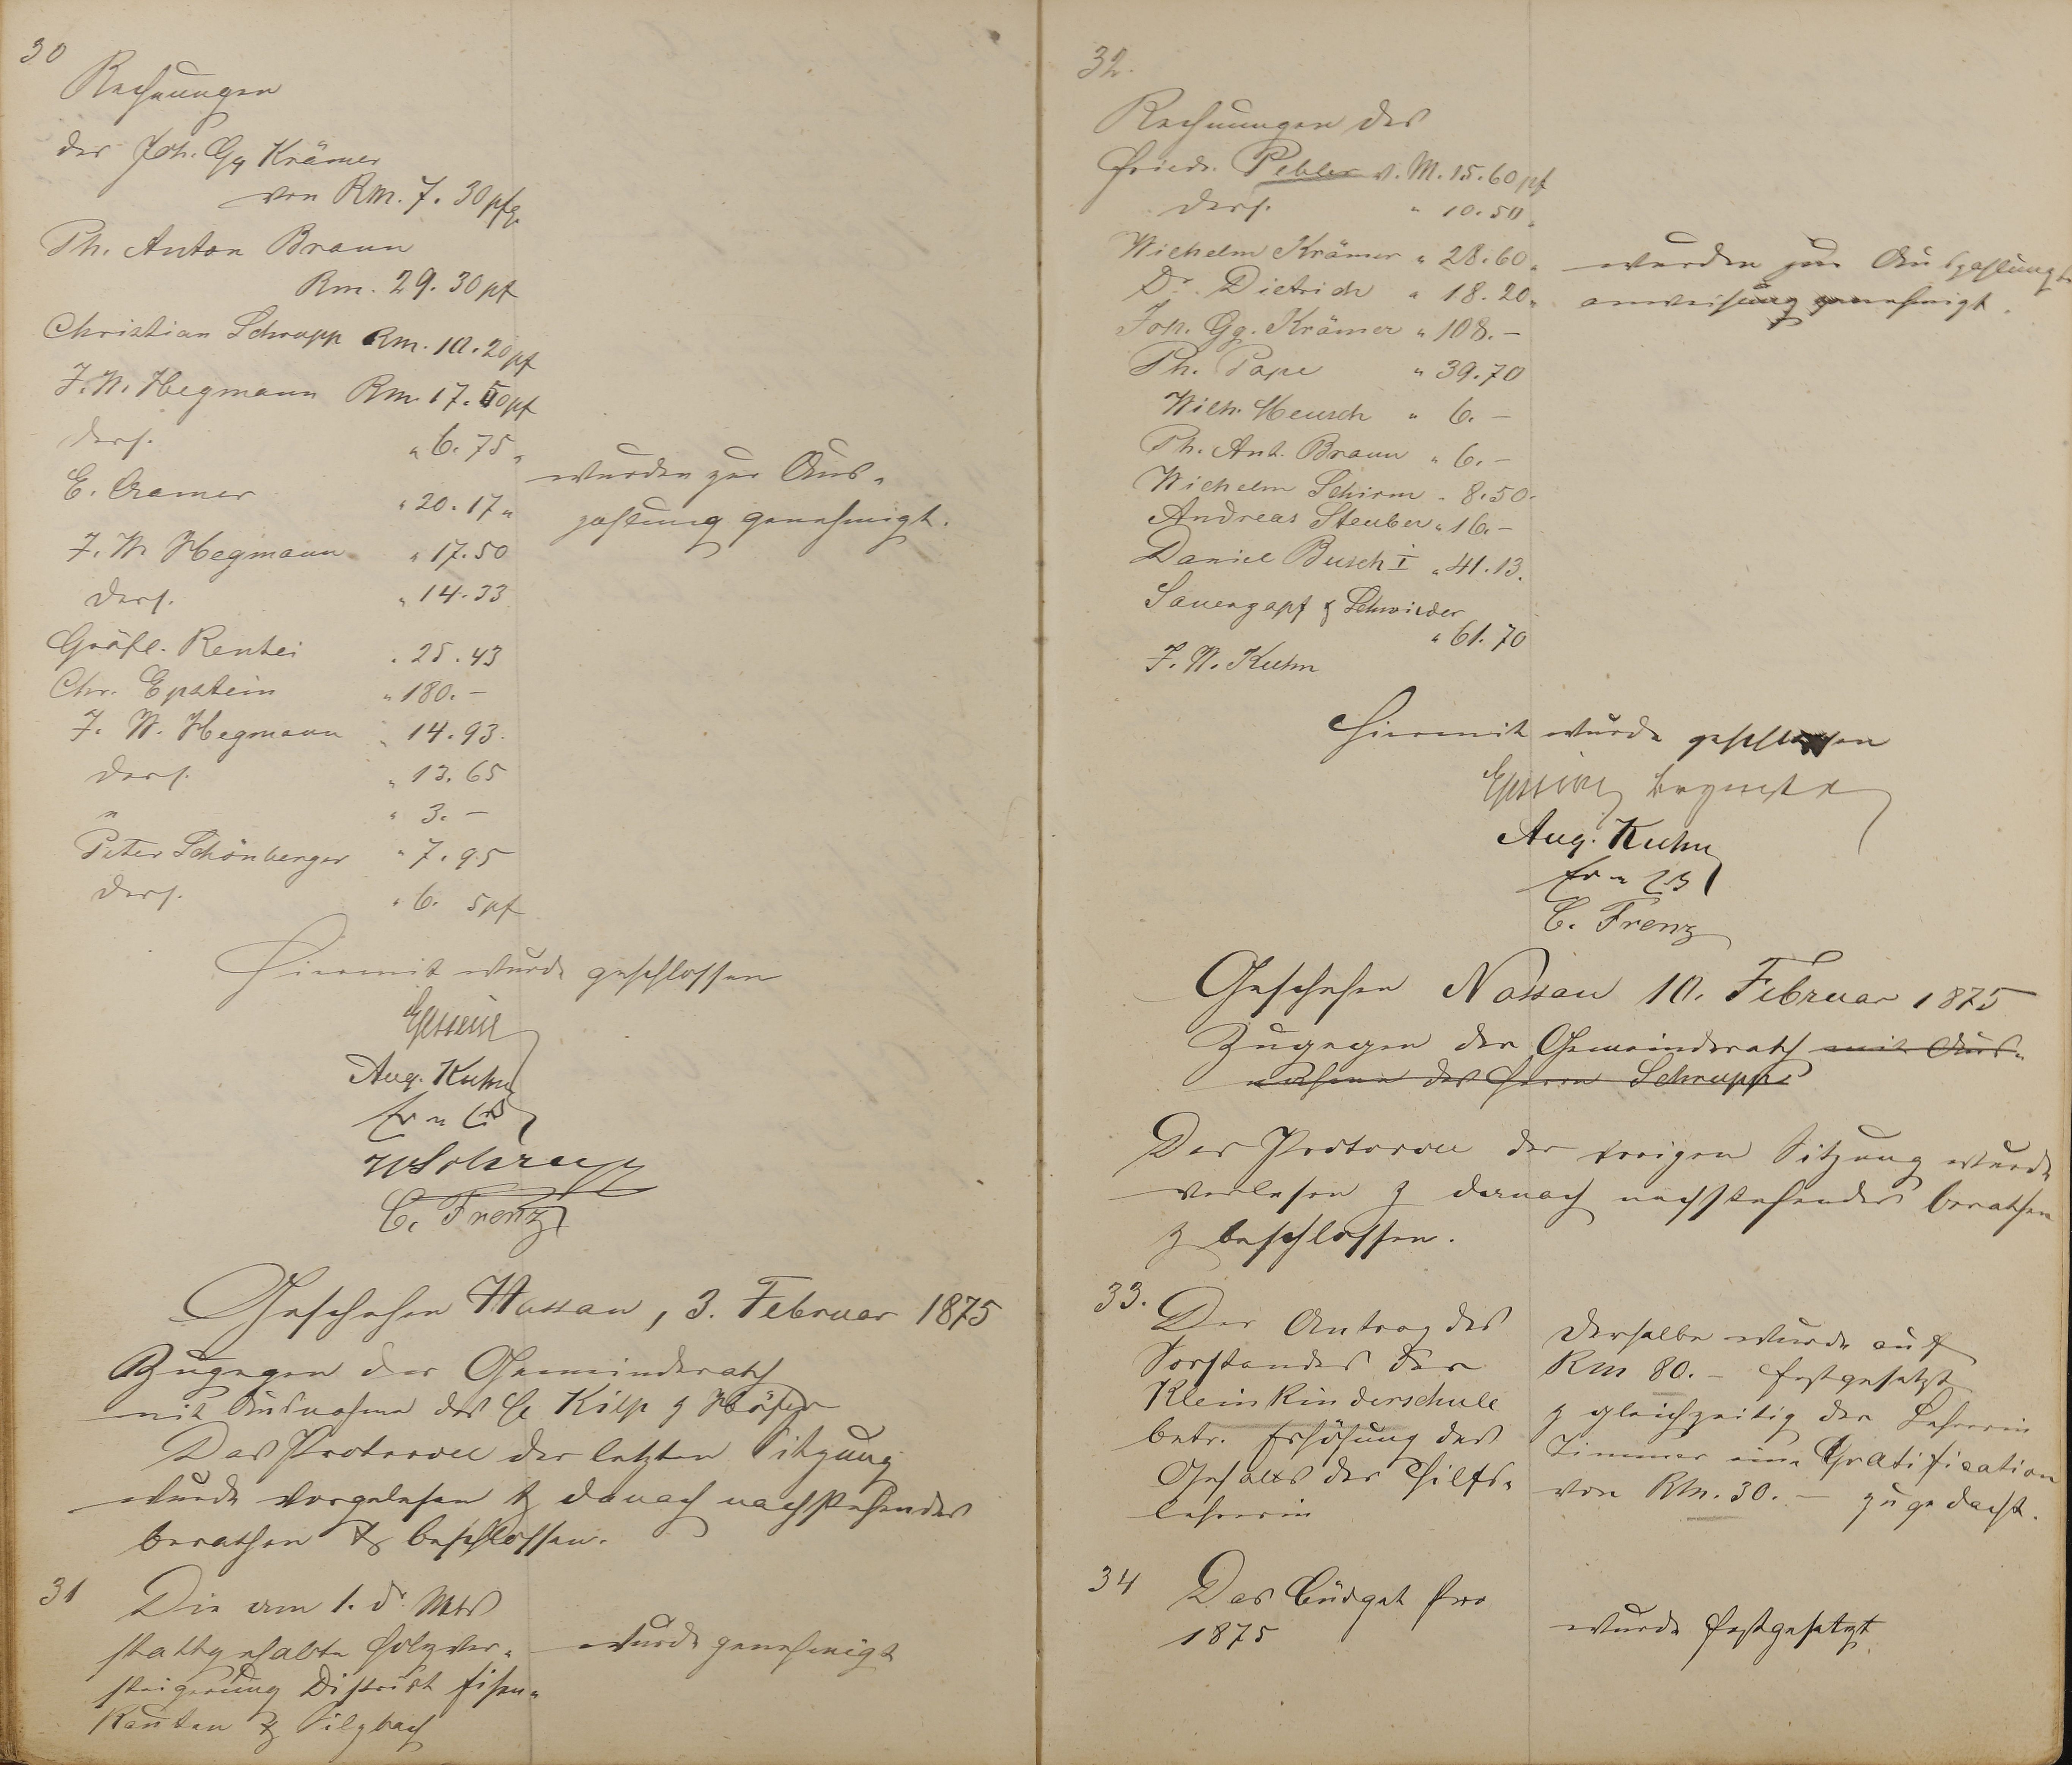 30
Rechnungen
des Joh. Gg Krämer
von Rm. 7. 30 pfg.
Ph. Anton Braun
Rm. 29. 30 pf
Christian Schrupp Rm. 10. 20 pf
F. W. Hegmann Rm. 17. 50 pf
ders. " 6. 75 "
E. Cramer " 20. 17 "
wurden zur Aus-
zahlung genehmigt.
F. W. Hegmann " 17. 50
ders. " 14. 33
Gräfl. Rentei " 25. 43
Chr. Epstein " 180. –
F. W. Hegmann " 14. 93.
ders. " 13. 65
" " 3. –
Peter Schönberger " 7. 95
ders. " 6. 5 pf
Hiermit wurde geschlossen
Aug. Kuhn
C. Frenz
Geschehen Nassau, 3. Februar 1875
Zugegen der Gemeinderath
mit Ausnahme des H. Kilp &
Das Protocoll der letzten Sitzung
wurde vorgelesen & danach nachstehendes
berathen & beschlossen.
31
Die am 1. d. Mts
stattgehabte Holzver-
steigerung District Eisen-
kauten & Silzbach
wurde genehmigt
32.
Rechnungen des
Friedr. Pebler v. M. 15. 60 pf
ders. " 10. 50 "
Wilhelm Krämer " 28. 60 "
Dr. Dietrich " 18. 20 "
wurden zur Auszahlungs
anweisung genehmigt.
Joh. Gg. Krämer " 108. –
Ph. Pape " 39. 70
Wilh. Heusch " 6. –
Ph. Ant. Braun " 6. –
Wilhelm Schirm " 8. 50.
Andreas Steuber " 16. –
Daniel Busch I " 41. 13.
Sauerzapf & Schwieder
" 61. 70
F. W. Kuhn
Hiermit wurde geschlossen
Aug. Kuhn
C. Frenz
Geschehen Nassau 10. Februar 1875
Zugegen der Gemeinderath mit Aus-
nahme des Herrn Schrupp
Das Protocoll der vorigen Sitzung wurde
verlesen & darnach nachstehendes berathen
& beschlossen.
33.
Der Antrag des
Vorstandes der
Kleinkinderschule
betr. Erhöhung des
Gehalts der Hilfs-
lehrerin
Derselbe wurde auf
Rm 80. – festgesetzt
& gleichzeitig der Lehrerin
Zimmer eine Gratification
von Rm. 30. – zugedacht.
34
Das Büdget pro
1875
wurde festgesetzt.